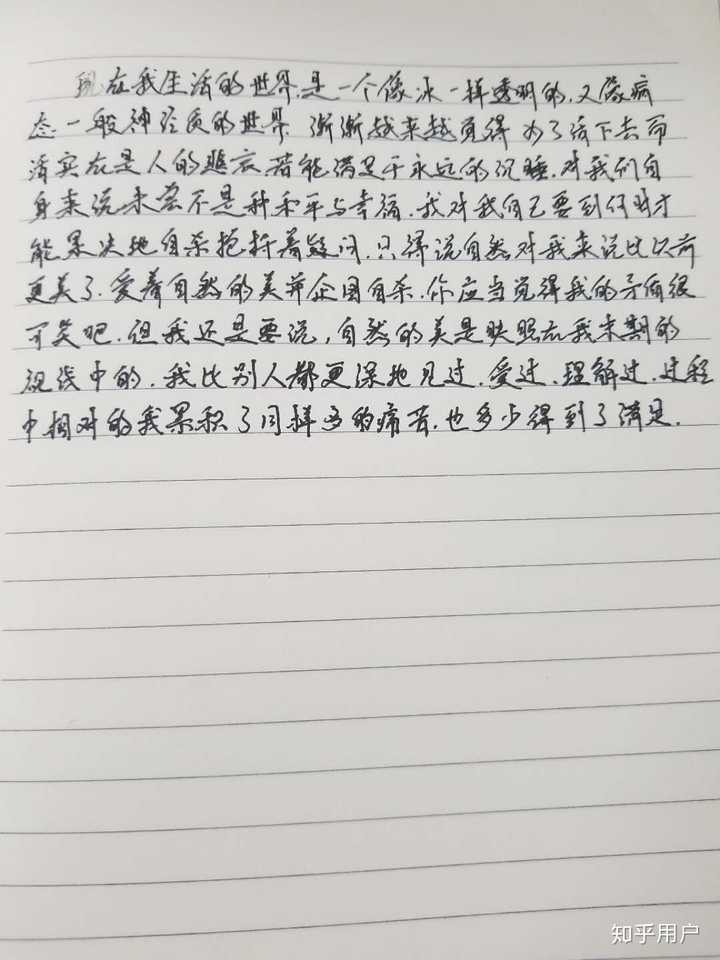 现在我生活的世界,是一个像冰一样透明的,又像病
态一般神经质的世界 渐渐越来越觉得 为了活下去而
活实在是人的悲哀.若能满足于永远的沉睡.对我们自
身来说未尝不是种和平与幸福.我对我自己要到何时才
能果决地自杀抱持着疑问.只得说自然对我来说比以前
更美了.爱着自然的美并企图自杀.你应当觉得我的矛盾很
可笑吧.但我还是要说,自然的美是映照在我末期的
视线中的.我比别人都更深地见过.爱过.理解过.过程
中相对的我累积了同样多的痛苦.也多少得到了满足.
知乎用户